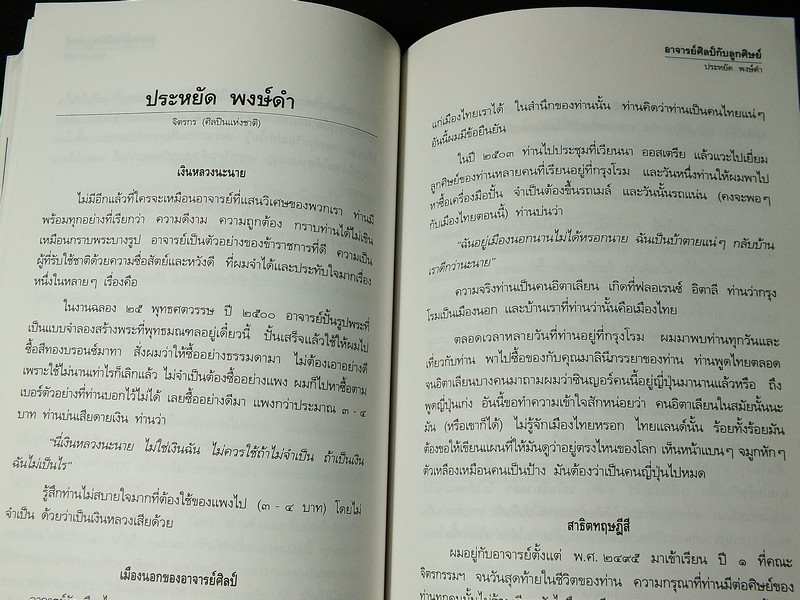 ประหยัด พงษ์ดำ
จิตรกร (ศิลปินแห่งชาติ)
เงินหลวงนะนาย
ไม่มีอีกแล้วที่ใครจะเหมือนอาจารย์ที่แสนวิเศษของพวกเรา ท่านมี
พร้อมทุกอย่างที่เรียกว่า ความดีงาม ความถูกต้อง กราบท่านได้ไม่เขิน
เหมือนกราบพระบางรูป อาจารย์เป็นตัวอย่างของข้าราชการที่ดี ความเป็น
ผู้ที่รับใช้ชาติด้วยความซื่อสัตย์และหวังดี ที่ผมจำได้และประทับใจมากเรื่อง
หนึ่งในหลายๆ เรื่องคือ
ในงานฉลอง ๒๕ พุทธศตวรรษ ปี ๒๕๐๐ อาจารย์ปั้นรูปพระที่
เป็นแบบจำลองสร้างพระที่พุทธมณฑลอยู่เดี๋ยวนี้ ปั้นเสร็จแล้วใช้ให้ผมไป
ซื้อสีทองบรอนซ์มาทา สั่งผมว่าให้ซื้ออย่างธรรมดามา ไม่ต้องเอาอย่างดี
เพราะใช้ไม่นานเท่าไรก็เลิกแล้ว ไม่จำเป็นต้องซื้ออย่างแพง ผมก็ไปหาซื้อตาม
เบอร์ตัวอย่างที่ท่านบอกไว้ไม่ได้ เลยซื้ออย่างดีมา แพงกว่าประมาณ ๓ - ๔
บาท ท่านบ่นเสียดายเงิน ท่านว่า
"นี่เงินหลวงนะนาย ไม่ใช่เงินฉัน ไม่ควรใช้ถ้าไม่จำเป็น ถ้าเป็นเงิน
ฉันไม่เป็นไร"
รู้สึกท่านไม่สบายใจมากที่ต้องใช้ของแพงไป (๓ - ๔ บาท) โดยไม่
จำเป็น ด้วยว่าเป็นเงินหลวงเสียด้วย
เมืองนอกของอาจารย์ศิลป์
อาจารย์ศิลป์กับลูกศิษย์
ประหยัด พงษ์ดำ
แก่เมืองไทยเราได้ ในสำนึกของท่านนั้น ท่านคิดว่าท่านเป็นคนไทยแน่ๆ
อันนี้ผมมีข้อยืนยัน
ในปี ๒๕๐๓ ท่านไปประชุมที่เวียนนา ออสเตรีย แล้วแวะไปเยี่ยม
ลูกศิษย์ของท่านหลายคนที่เรียนอยู่ที่กรุงโรม และวันหนึ่งท่านให้ผมพาไป
หาซื้อเครื่องมือปั้น จำเป็นต้องขึ้นรถเมล์ และวันนั้นรถแน่น (คงจะพอๆ
กับเมืองไทยตอนนี้) ท่านบ่นว่า
"ฉันอยู่เมืองนอกนานไม่ได้หรอกนาย ฉันเป็นบ้าตายแน่ๆ กลับบ้าน
เราดีกว่านะนาย"
ความจริงท่านเป็นคนอิตาเลียน เกิดที่ฟลอเรนซ์ อิตาลี ท่านว่ากรุง
โรมเป็นเมืองนอก และบ้านเราที่ท่านว่านั้นคือเมืองไทย
ตลอดเวลาหลายวันที่ท่านอยู่ที่กรุงโรม ผมมาพบท่านทุกวันและ
เที่ยวกับท่าน พาไปซื้อของกับคุณมาลินีภรรยาของท่าน ท่านพูดไทยตลอด
จนอิตาเลียนบางคนมาถามผมว่าซินญอร์คนนี้อยู่ญี่ปุ่นมานานแล้วหรือ ถึง
พูดญี่ปุ่นเก่ง อันนี้ขอทำความเข้าใจสักหน่อยว่า คนอิตาเลียนในสมัยนั้นนะ
มัน (หรือเขาก็ได้) ไม่รู้จักเมืองไทยหรอก ไทยแลนด์นั้น ร้อยทั้งร้อยมัน
ต้องขอให้เขียนแผนที่ให้มันดูว่าอยู่ตรงไหนของโลก เห็นหน้าแบนๆ จมูกหักๆ
ตัวเหลืองเหมือนคนเป็นป้าง มันต้องว่าเป็นคนญี่ปุ่นไปหมด
สาธิตทฤษฎีสี
ผมอยู่กับอาจารย์ตั้งแต่ พ.ศ. ๒๔๙๕ มาเข้าเรียน ปี ๑ ที่คณะ
จิตรกรรมฯ จนวันสุดท้ายในชีวิตของท่าน ความกรุณาที่ท่านมีต่อศิษย์ของ